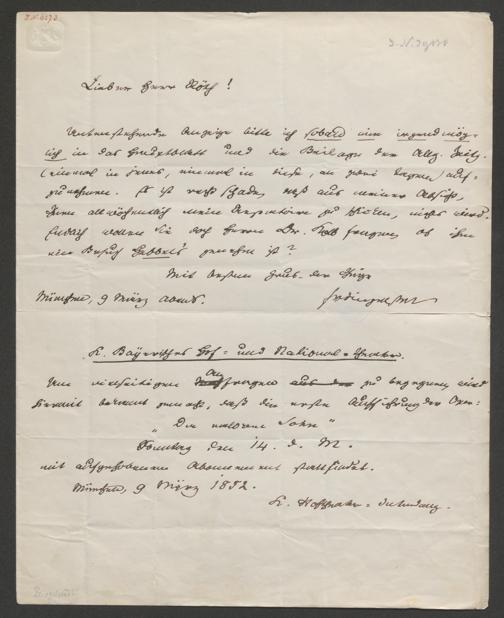 Lieber Herr Röth!
Untenstehende Anzeige bitte ich sobald nur irgend mög-
lich in das Hauptblatt und die Beilage der Allg. Zeitg.
(einmal in jenes, einmal in diese, an zwei Tagen) auf-
zunehmen. Es ist recht schade, daß aus meiner Absicht,
Ihnen allwöchentlich mein Repertoire zu schicken, nichts wird.
wollen Sie doch Herrn Dr. Kolb fragen, ob ihm
ein Besuch genehm ist?
Mit bestem Gruß der Ihrige
München, 9 März abends.
Dingelstedt
K. Bayerisches Hof- und National-Theater.
Um vielseitigen Anfragen zu begegnen wird
hiermit bekannt gemacht, daß die erste Aufführung der Oper:
„Der verlorene Sohn"
Sonntag den 14. d. M.
mit aufgehobenem Abonnement stattfindet.
München, 9 März 1852.
K. Hoftheater-Intendanz.